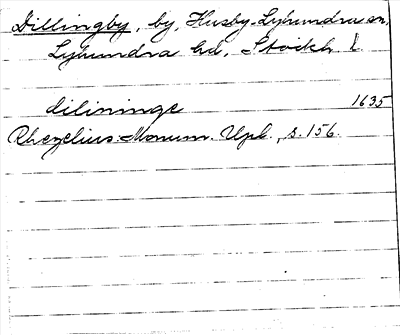 Dillingby, by, Husby-Lyhundra sn,
Lyhundra hd, Stockh. l.
dilininge 1635
Rhezelius: Monum. Upl., s. 156.